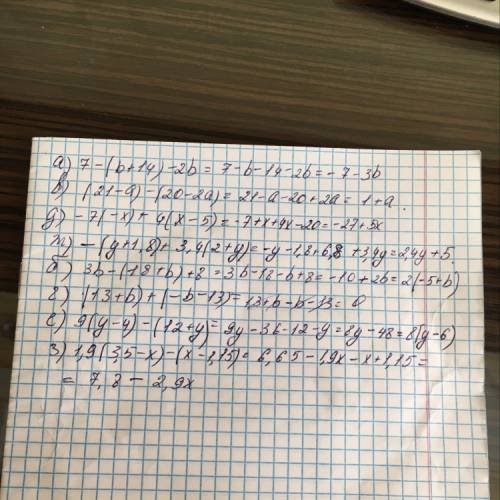 а) 7-(b+14)-2b = 7-b-14-2b = -7-3b
в) (21-a)-(20-2a) = 21-a-20+2a = 1+a.
д) -7(-x)+4(x-5) = -7+x+4x-20 = -27+5x
ж) -(y+1,8)+3,4(2+y) = -y-1,8+6,8+3,4y = 2,4y+5.
б) 3b-(18+b)+8 = 3b-18-b+8 = -10+2b = 2(-5+b)
г) (13+b)+(-b-13) = 13+b-b-13 = 0
е) 9(y-4)-(12+y) = 9y-36-12-y = 8y-48 = 8(y-6)
з) 1,9(3,5-x)-(x-1,15) = 6,65-1,9x-x+1,15 =
= 7,8-2,9x